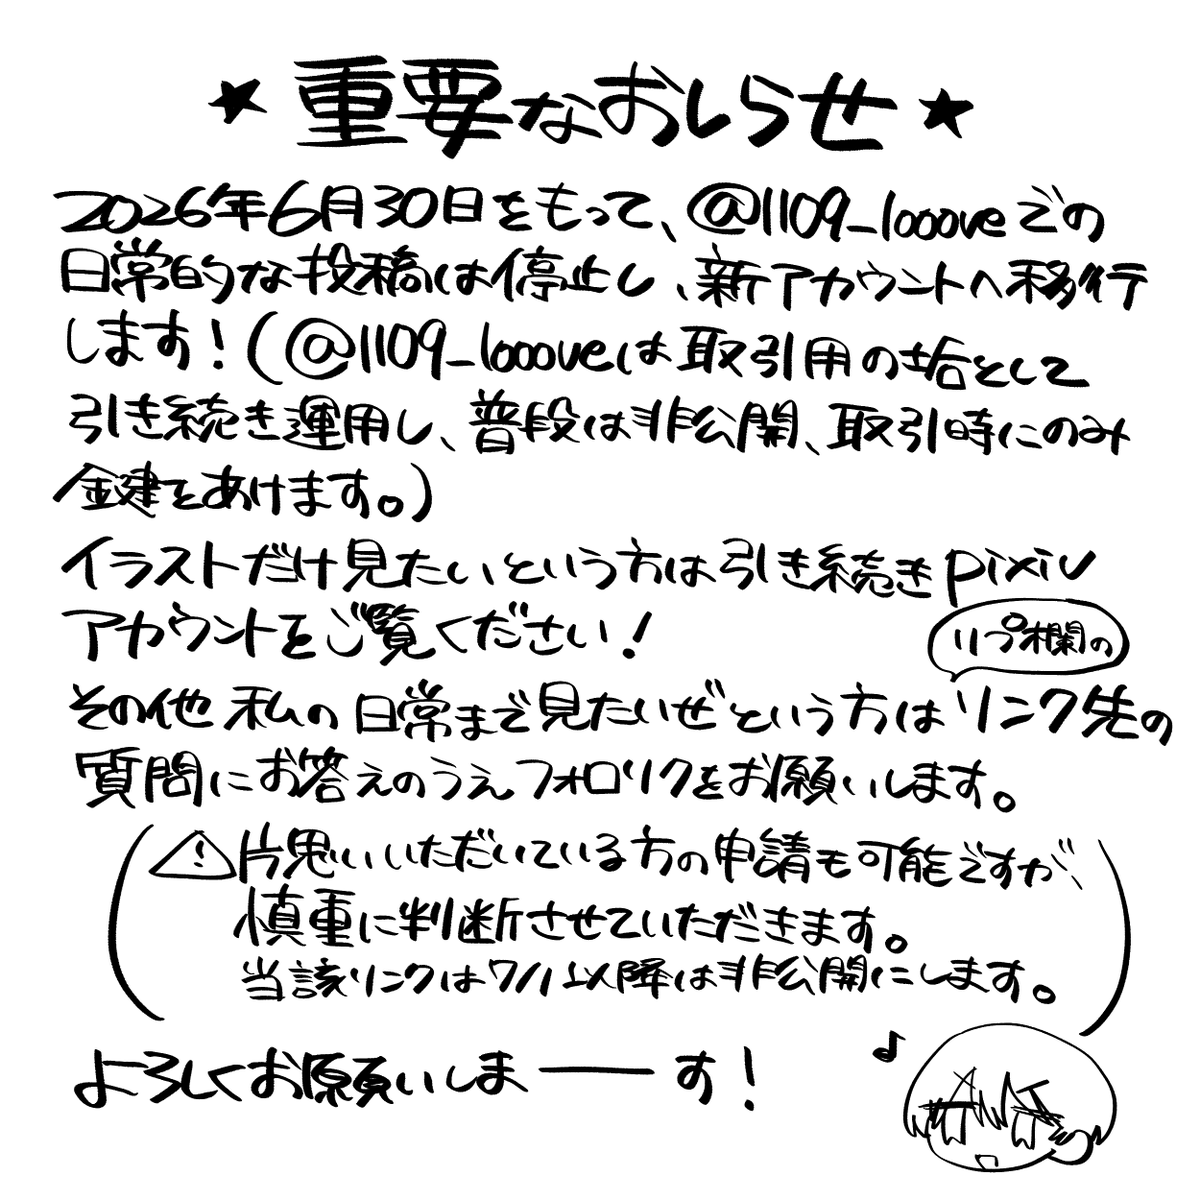 ★重要なおしらせ★
2026年6月30日をもって、@1109_loooveでの
日常的な投稿は停止し、新アカウントへ移行
します!(@1109_loooveは取引用の垢として
引き続き運用し、普段は非公開、取引時にのみ
鍵をあけます。)
イラストだけ見たいという方は引き続きpixiv
アカウントをご覧ください!
リプ欄の
その他私の日常まで見たいぜという方はリンク先の
質問にお答えのうえフォロリクをお願いします。
⚠片思いいただいている方の申請も可能ですが、
慎重に判断させていただきます。
当該リンクは7/1以降は非公開にします。
よろしくお願いしまーーす!
♪